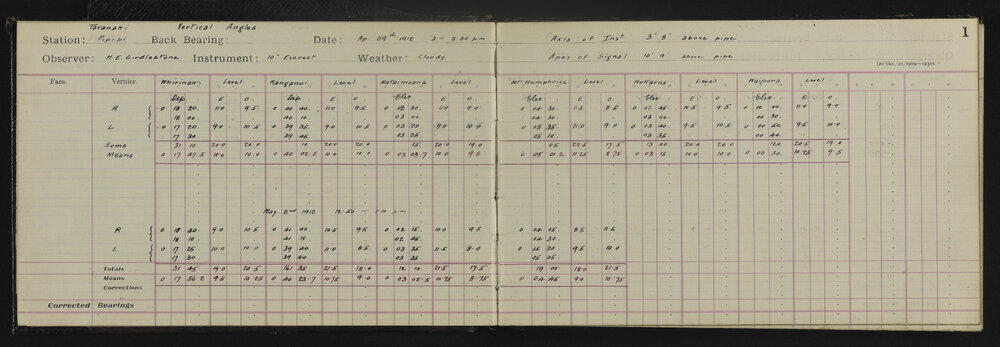 Taranaki Vertical Angles 1
Station: Pipipi Back Bearing: Date: Ap. 29th 1912 3 – 3.30 pm Axis of Inst 3' 8" above pipe
Observer: H.E. Girdlestone Instrument: 10" Everest Weather: Cloudy Apex of Signal 10' 9 above pipe
Face. Vernier. Whirinaki Level Ranganui Level Mataimoana Level Mt Humphries Level Huiaroa Level Waipuna Level
Dep E O Dep E O Elev E O Elev E O Elev E O Elev E O
R 0 18 20 11.0 9.5 0 40 40 11.0 9.5 0 02 30 11.0 9.0 0 04 30 11.5 8.5 0 02 45 10.5 9.5 0 00 00 11.0 9.0
18 00 40 10 03 00 04 50 03 00 00 30
L 0 17 20 9.0 10.5 0 39 35 9.0 10.5 0 03 20 9.0 10.0 0 05 35 11.0 9.0 0 03 40 9.5 10.5 0 00 50 9.5 10.0
17 30 39 45 03 25 05 10 03 35 00 40
Sums 31 10 20.0 20.0 10 20.0 20.0 15 20.0 19.0 05 22.5 17.5 13 00 20.0 20.0 120 20.5 19.0
Means 0 17 47.5 10.0 10.0 0 40 02.5 10.0 10.0 0 03 03.7 10.0 9.5 0 05 01.2 11.25 8.75 0 03 15 10.0 10.0 0 00 30 10.25 9.5
May 2nd 1912 12.50 – 1.10 pm
R 0 18 40 9.0 10.5 0 41 00 10.5 9.5 0 02 15 10.0 9.5 0 04 05 8.5 11.5
18 10 41 15 02 45 04 30
L 0 17 25 10.0 10.0 0 39 40 11.0 8.5 0 03 35 11.5 8.0 0 05 20 9.5 10.0
17 30 39 40 03 35 05 05
Totals 31 45 19.0 20.5 161 35 21.5 18.0 12 10 21.5 17.5 19 00 18.0 21.5
Means 0 17 56.2 9.5 10.25 0 40 23.7 10.75 9.0 0 03 02.5 10.75 8.75 0 04 45 9.0 10.75
Corrections
Corrected Bearings